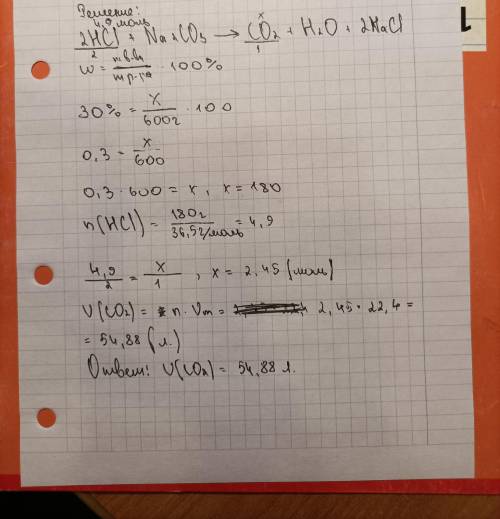 Решение:
4,9 моль x
2HCl + Na2CO3 → CO2 + H2O + 2NaCl
2 1
w = mв.ва / mр.ра · 100%
30% = x / 600г · 100
0,3 = x / 600
0,3 · 600 = x, x = 180
n(HCl) = 180г / 36,5г/моль = 4,9
4,9 / 2 = x / 1, x = 2,45 (моль)
V(CO2) = n · Vm = 2,45 · 22,4 =
= 54,88 (л.)
Ответ: V(CO2) = 54,88 л.
1